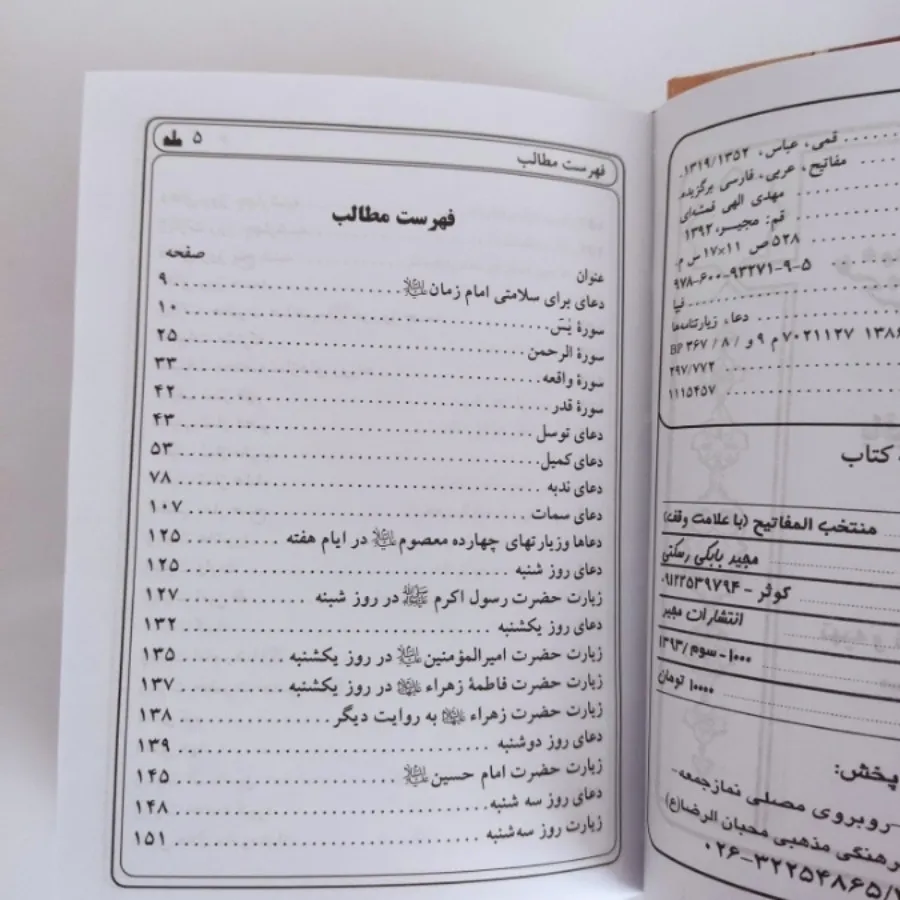 ۵
فهرست مطالب
فهرست مطالب
عنوان صفحه
دعای برای سلامتی امام زمان ........ ۹
سورهٔ یٰسٓ ........ ۱۰
سورهٔ الرحمن ........ ۲۵
سورهٔ واقعه ........ ۳۳
سورهٔ قدر ........ ۴۲
دعای توسل ........ ۴۳
دعای کمیل ........ ۵۳
دعای ندبه ........ ۷۸
دعای سمات ........ ۱۰۷
دعاها وزیارتهای چهارده معصوم در ایام هفته ........ ۱۲۵
دعای روز شنبه ........ ۱۲۵
زیارت حضرت رسول اکرم ﷺ در روز شبنه ........ ۱۲۷
دعای روز یکشنبه ........ ۱۳۲
زیارت حضرت امیرالمؤمنین در روز یکشنبه ........ ۱۳۵
زیارت حضرت فاطمهٔ زهراء در روز یکشنبه ........ ۱۳۷
زیارت حضرت زهراء به روایت دیگر ........ ۱۳۸
دعای روز دوشنبه ........ ۱۳۹
زیارت حضرت امام حسین ........ ۱۴۵
دعای روز سه شنبه ........ ۱۴۸
زیارت روز سه‌شنبه ........ ۱۵۱
قمی، عباس، ۱۳۱۹/۱۳۵۲.
مفاتیح، عربی، فارسی برگزیده
مهدی الهی قمشه‌ای
قم: مجیر، ۱۳۹۲
۵۲۸ ص ۱۱×۱۷ س م.
۹۷۸-۶۰۰-۹۳۲۷۱-۹-۵
فیپا
دعاء، زیارتنامه‌ها
BP ۳۶۷ / ۸ / و ۹ م ۷۰۲۱۱۲۷ ۱۳۸۶
۲۹۷/۷۷۲
۱۱۱۵۴۵۷
کتاب
منتخب المفاتیح (با علامت وقف)
مجید بابکی رستکی
کوثر - ۰۹۱۲۲۵۳۹۷۹۴
انتشارات مجیر
۱۰۰۰ - سوم / ۱۳۹۳
۱۰۰۰۰ تومان
پخش:
روبروی مصلی نمازجمعه-
فرهنگی مذهبی محبان الرضا(ع)
۰۲۶-۳۲۲۵۴۸۶۵/